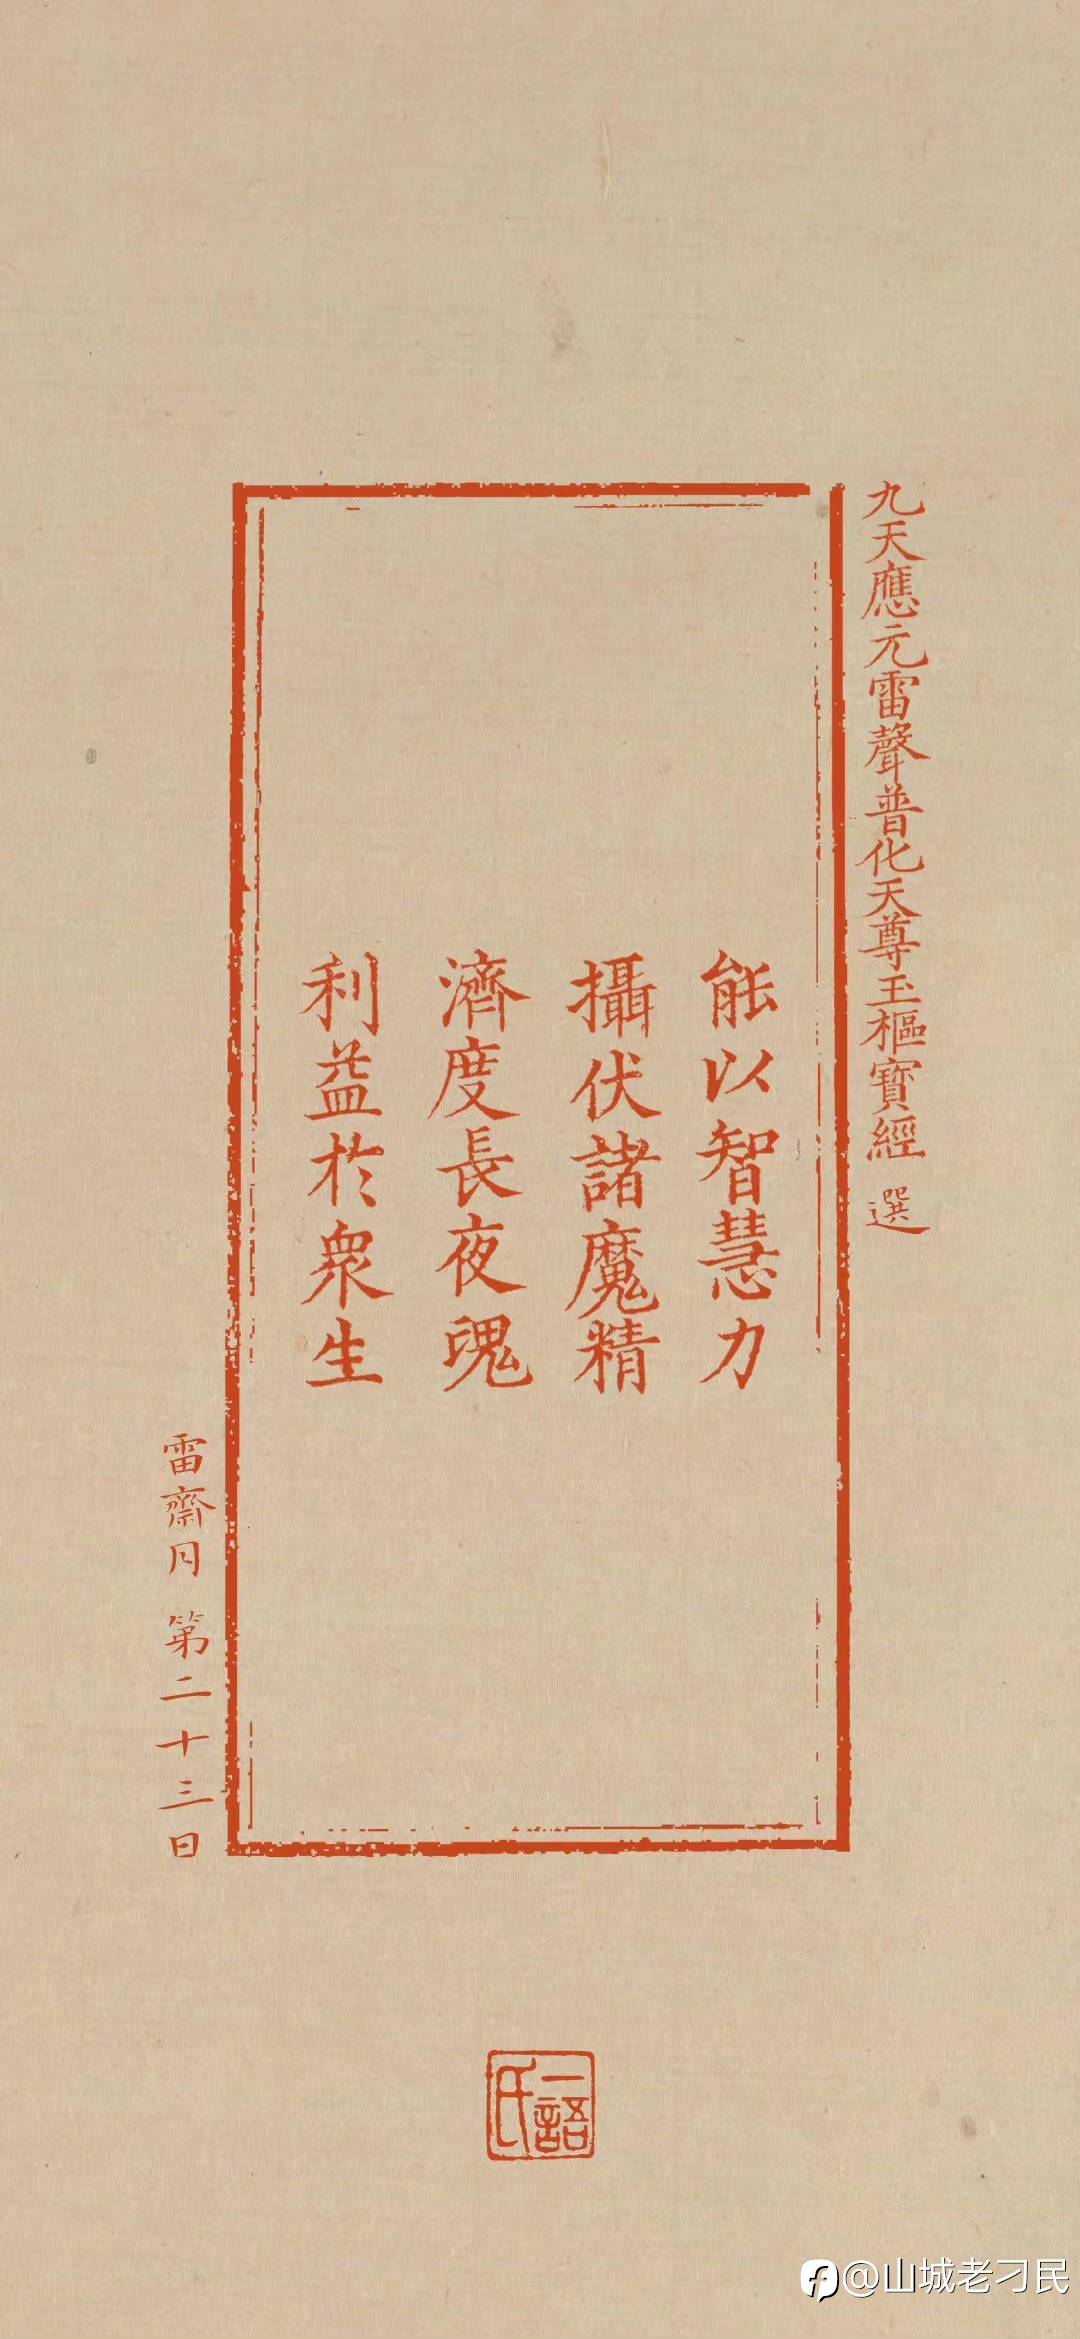 九天應元雷聲普化天尊玉樞寶經 選
能以智慧力
攝伏諸魔精
濟度長夜魂
利益於衆生
雷齋月 第二十三日
一語氏
@山城老刁民